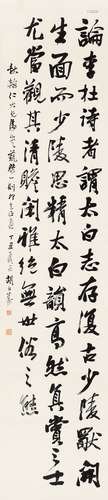 論李杜詩者謂太白古少陵開
生面而少陵思精太白韻高然真賞之士
尤當觀其清贍閒雅絕無世俗之態
仁兄
丁丑